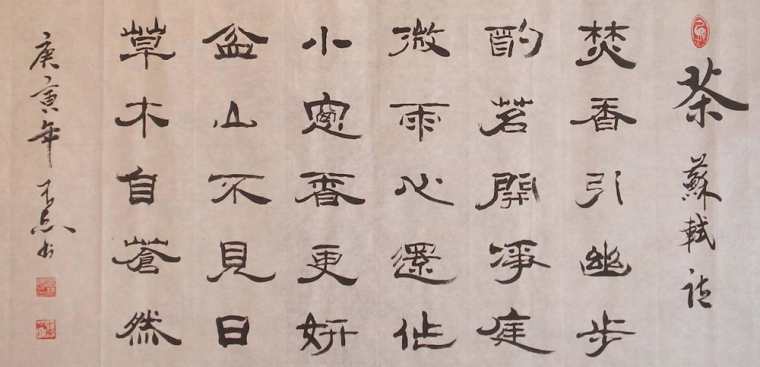 茶 蘇軾詩
焚香引幽步
酌茗開淨庭
微雨心還作
小窗香更妍
盆山不見日
草木自蒼然
庚寅年 书